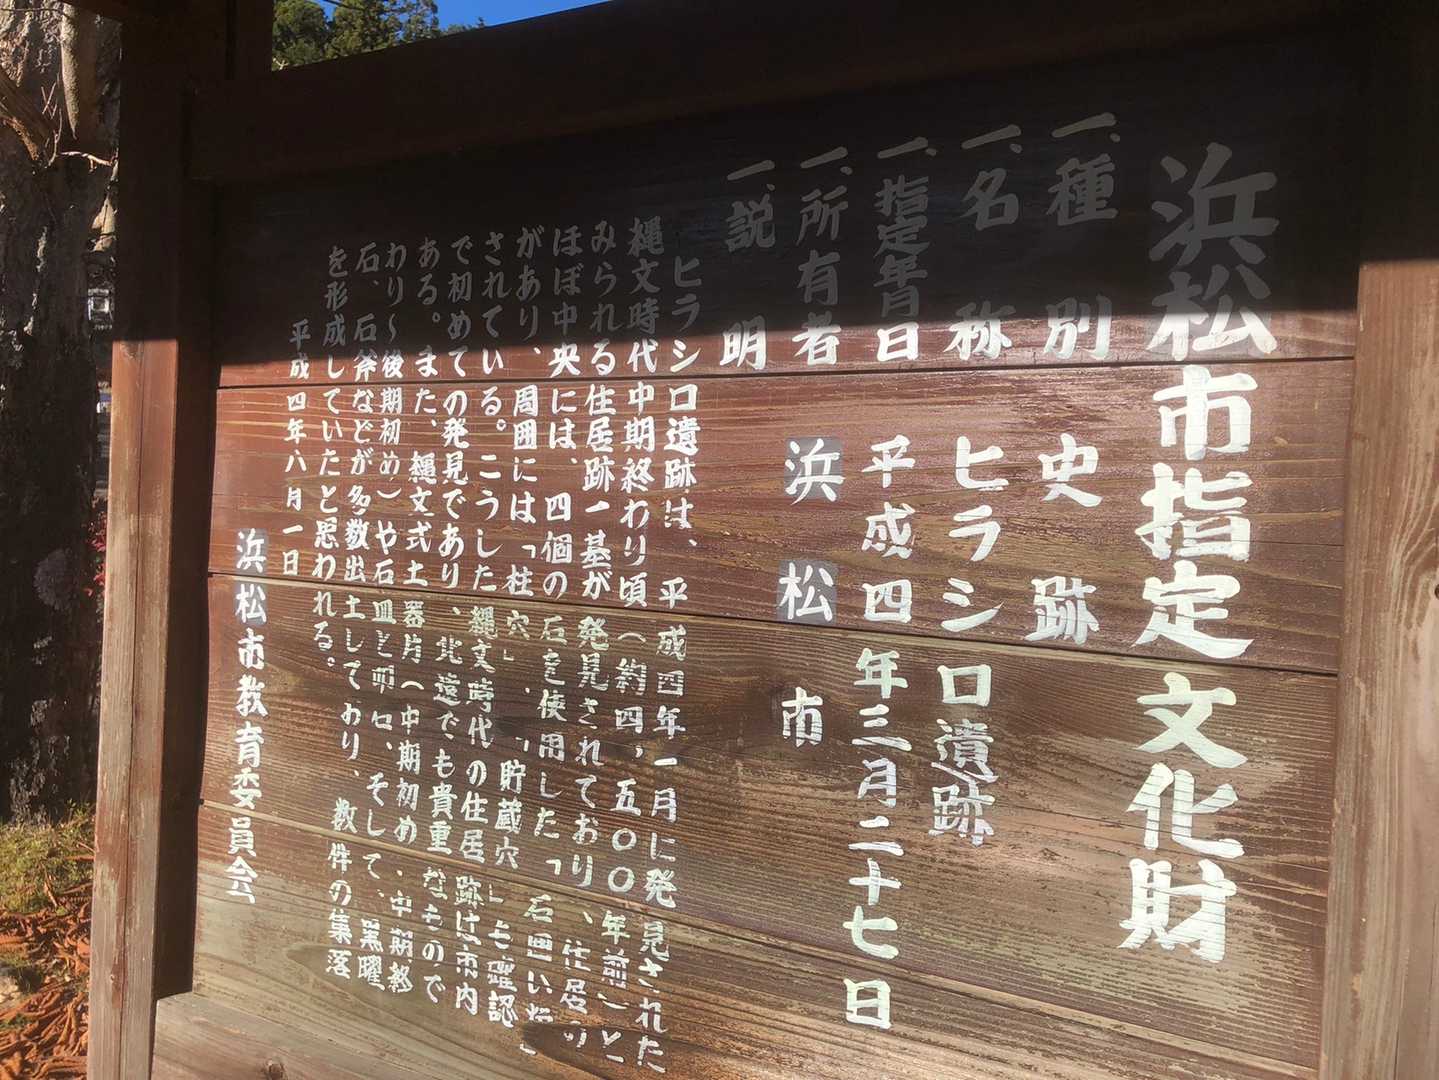 浜松市指定文化財
一、種別 史跡
一、名称 ヒラシロ遺跡
一、指定年月日 平成四年三月二十七日
一、所有者 浜松市
一、説明
ヒラシロ遺跡は、平成四年一月に発見された
縄文時代中期終わり頃(約四、五〇〇年前)と
みられる住居跡一基が発見されており、住居の
ほぼ中央には、四個の石を使用した「石囲い炉」
があり、周囲には「柱穴」、「貯蔵穴」も確認
されている。こうした縄文時代の住居跡は市内
で初めての発見であり、北遠でも貴重なもので
ある。また、縄文式土器片(中期初め・中期終
わり〜後期初め)や石皿と凹石、そして、黒曜
石、石斧などが多数出土しており、数件の集落
を形成していたと思われる。
平成四年八月一日
浜松市教育委員会